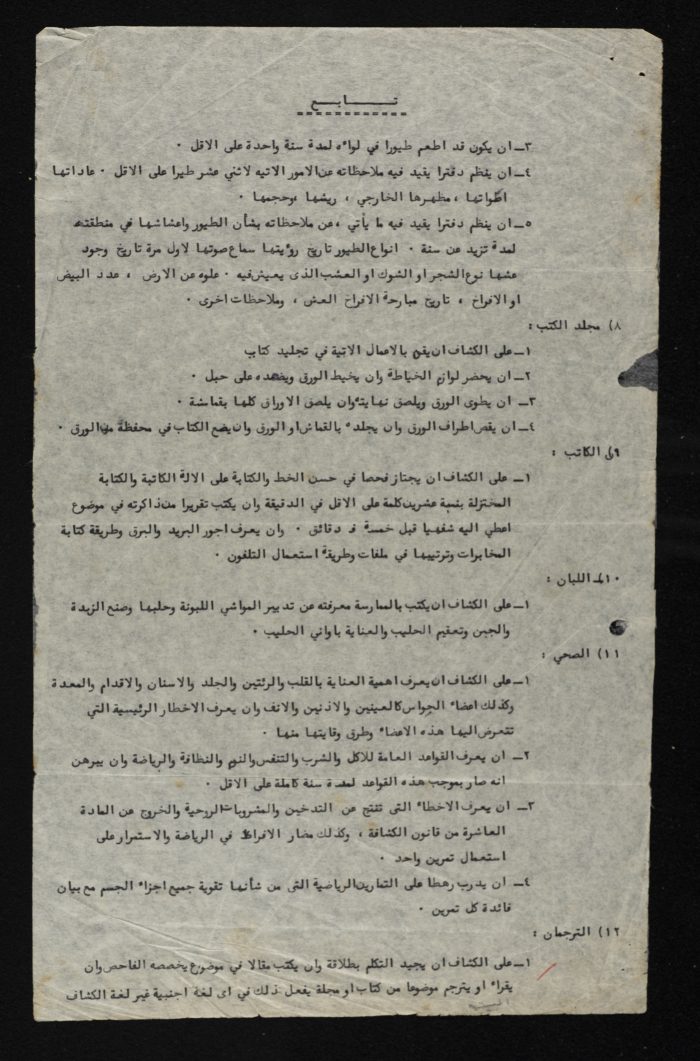 تـــابـــع
٣ــ ان يكون قد اطعم طيورا في لواءه لمدة سنة واحدة على الاقل ٠
٤ــ ان ينظم دفترا يقيد فيه ملاحظاته عن الامور الاتيه لاثني عشر طيرا على الاقل ٠ عاداتها
اطواتها ، مظهرها الخارجي ، ريشها ،وحجمها ٠
٥ــ ان ينظم دفترا يقيد فيه ما يأتي ،عن ملاحظاته بشأن الطيور واعشاشها في منطقته
لمدة تزيد عن سنة ٠ انواع الطيور تاريخ رؤيتها سماع صوتها لاول مرة تاريخ وجود
عشها نوع الشجر او الشوك او العشب الذى يعيش فيه ٠ علوه عن الارض ، عدد البيض
او الافراخ ، تاريخ مبارحة الافراخ العش ، وملاحظات اخرى ٠
٨) مجلد الكتب :
١ــ على الكشاف ان يقوم بالاعمال الاتية في تجليد كتاب
٢ــ ان يحضر لوازم الخياطة وان يخيط الورق ويضعده على حبل ٠
٣ــ ان يطوى الورق ويلصق نهايته وان يلصق الاوراق كلها بقماشة ٠
٤ــ ان يقص اطراف الورق وان يجلده بالقماش او الورق وان يضع الكتاب في محفظة من الورق ٠
٩) الكاتب :
١ــ على الكشاف ان يجتاز فحصا في حسن الخط والكتابة على الالة الكاتبة والكتابة
المختزلة بنسبة عشرين كلمة على الاقل في الدقيقة وان يكتب تقريرا من ذاكرته في موضوع
اعطي اليه شفهيا قبل خمسة دقائق ٠ وان يعرف اجور البريد والبرق وطريقة كتابة
المخابرات وترتيبها في ملفات وطريقة استعمال التلفون ٠
١٠) اللبان :
١ــ على الكشاف ان يكتب بالممارسة معرفته عن تدبير المواشي اللبونة وحلبها وصنع الزبدة
والجبن وتعقيم الحليب والعناية باواني الحليب ٠
١١) الصحي :
١ــ على الكشاف ان يعرف اهمية العناية بالقلب والرئتين والجلد والاسنان والاقدام والمعدة
وكذلك اعضاء الحواس كالعينين والاذنين والانف وان يعرف الاخطار الرئيسية التي
تتعرض اليها هذه الاعضاء وطرق وقايتها منها ٠
٢ــ ان يعرف القواعد العامة للاكل والشرب والتنفس والنوم والنظافة والرياضة وان يبرهن
انه صار بموجب هذه القواعد لمدة سنة كاملة على الاقل ٠
٣ــ ان يعرف الاخطاء التى تنتج عن التدخين والمشروبات الروحية والخروج عن المادة
العاشرة من قانون الكشافة ، وكذلك مضار الافراط في الرياضة والاستمرار على
استعمال تمرين واحد ٠
٤ــ ان يدرب رهطا على التمارين الرياضية التى من شأنها تقوية جميع اجزاء الجسم مع بيان
فائدة كل تمرين ٠
١٢) الترجمان :
١ــ على الكشاف ان يجيد التكلم بطلاقة وان يكتب مقالا في موضوع يخصصه الفاحص وان
يقراء او يترجم موضوعا من كتاب او مجلة يفعل ذلك في اى لغة اجنبية غير لغة الكشاف